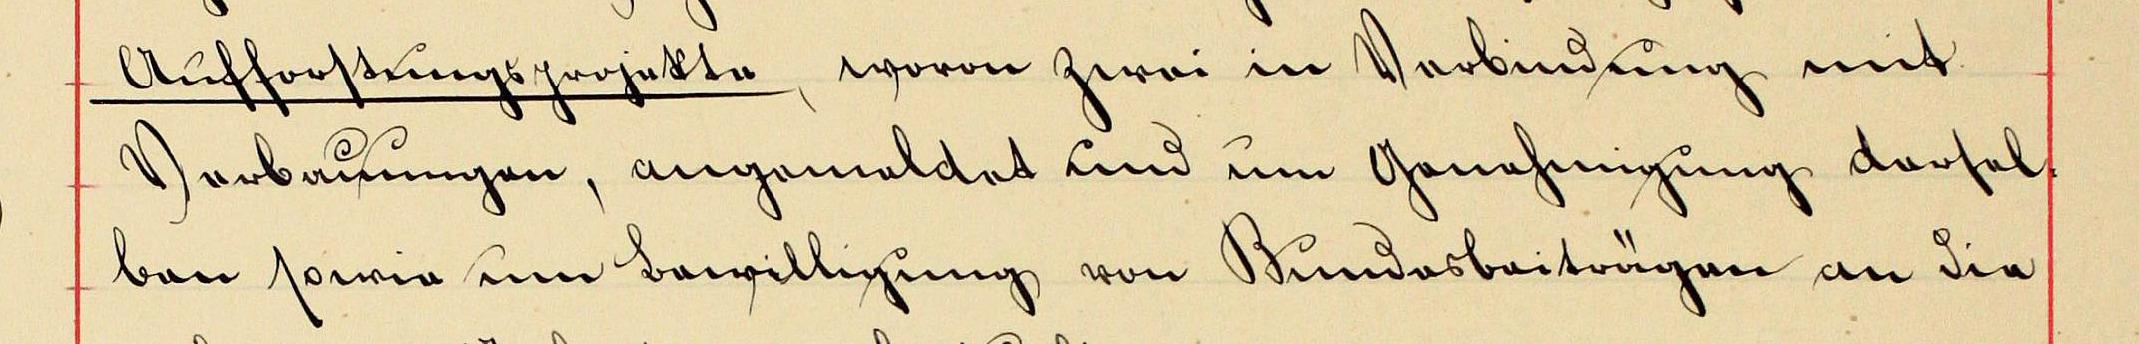 Aufforstungsprojekte, wovon zwei in Verbindung mit
Verbauungen, angemeldet und um Genehmigung dersel-
ben sowie um Bewilligung von Bundesbeiträgen an die